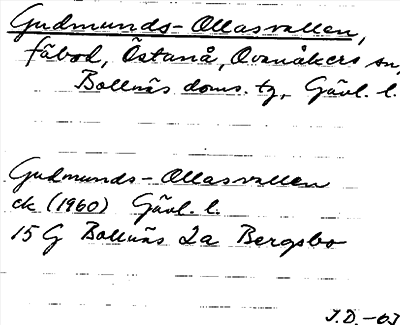 Gudmunds-Ollasvallen,
fäbod, Östanå, Ovanåkers sn,
Bollnäs doms. tg, Gävl. l.
Gudmunds-Ollasvallen
ek (1960) Gävl. l.
15 G Bollnäs 2a Bergsbo
J.D.-63